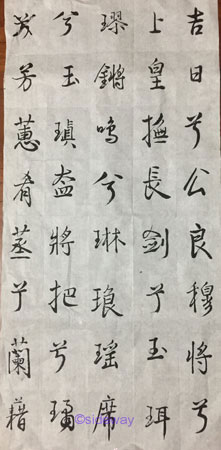 吉日兮公良穆將兮
上皇撫長劍兮玉珥
璆鏘鳴兮琳琅瑶席
兮玉瑱盍將把兮璚
芳蕙肴蒸兮蘭藉
©sideway